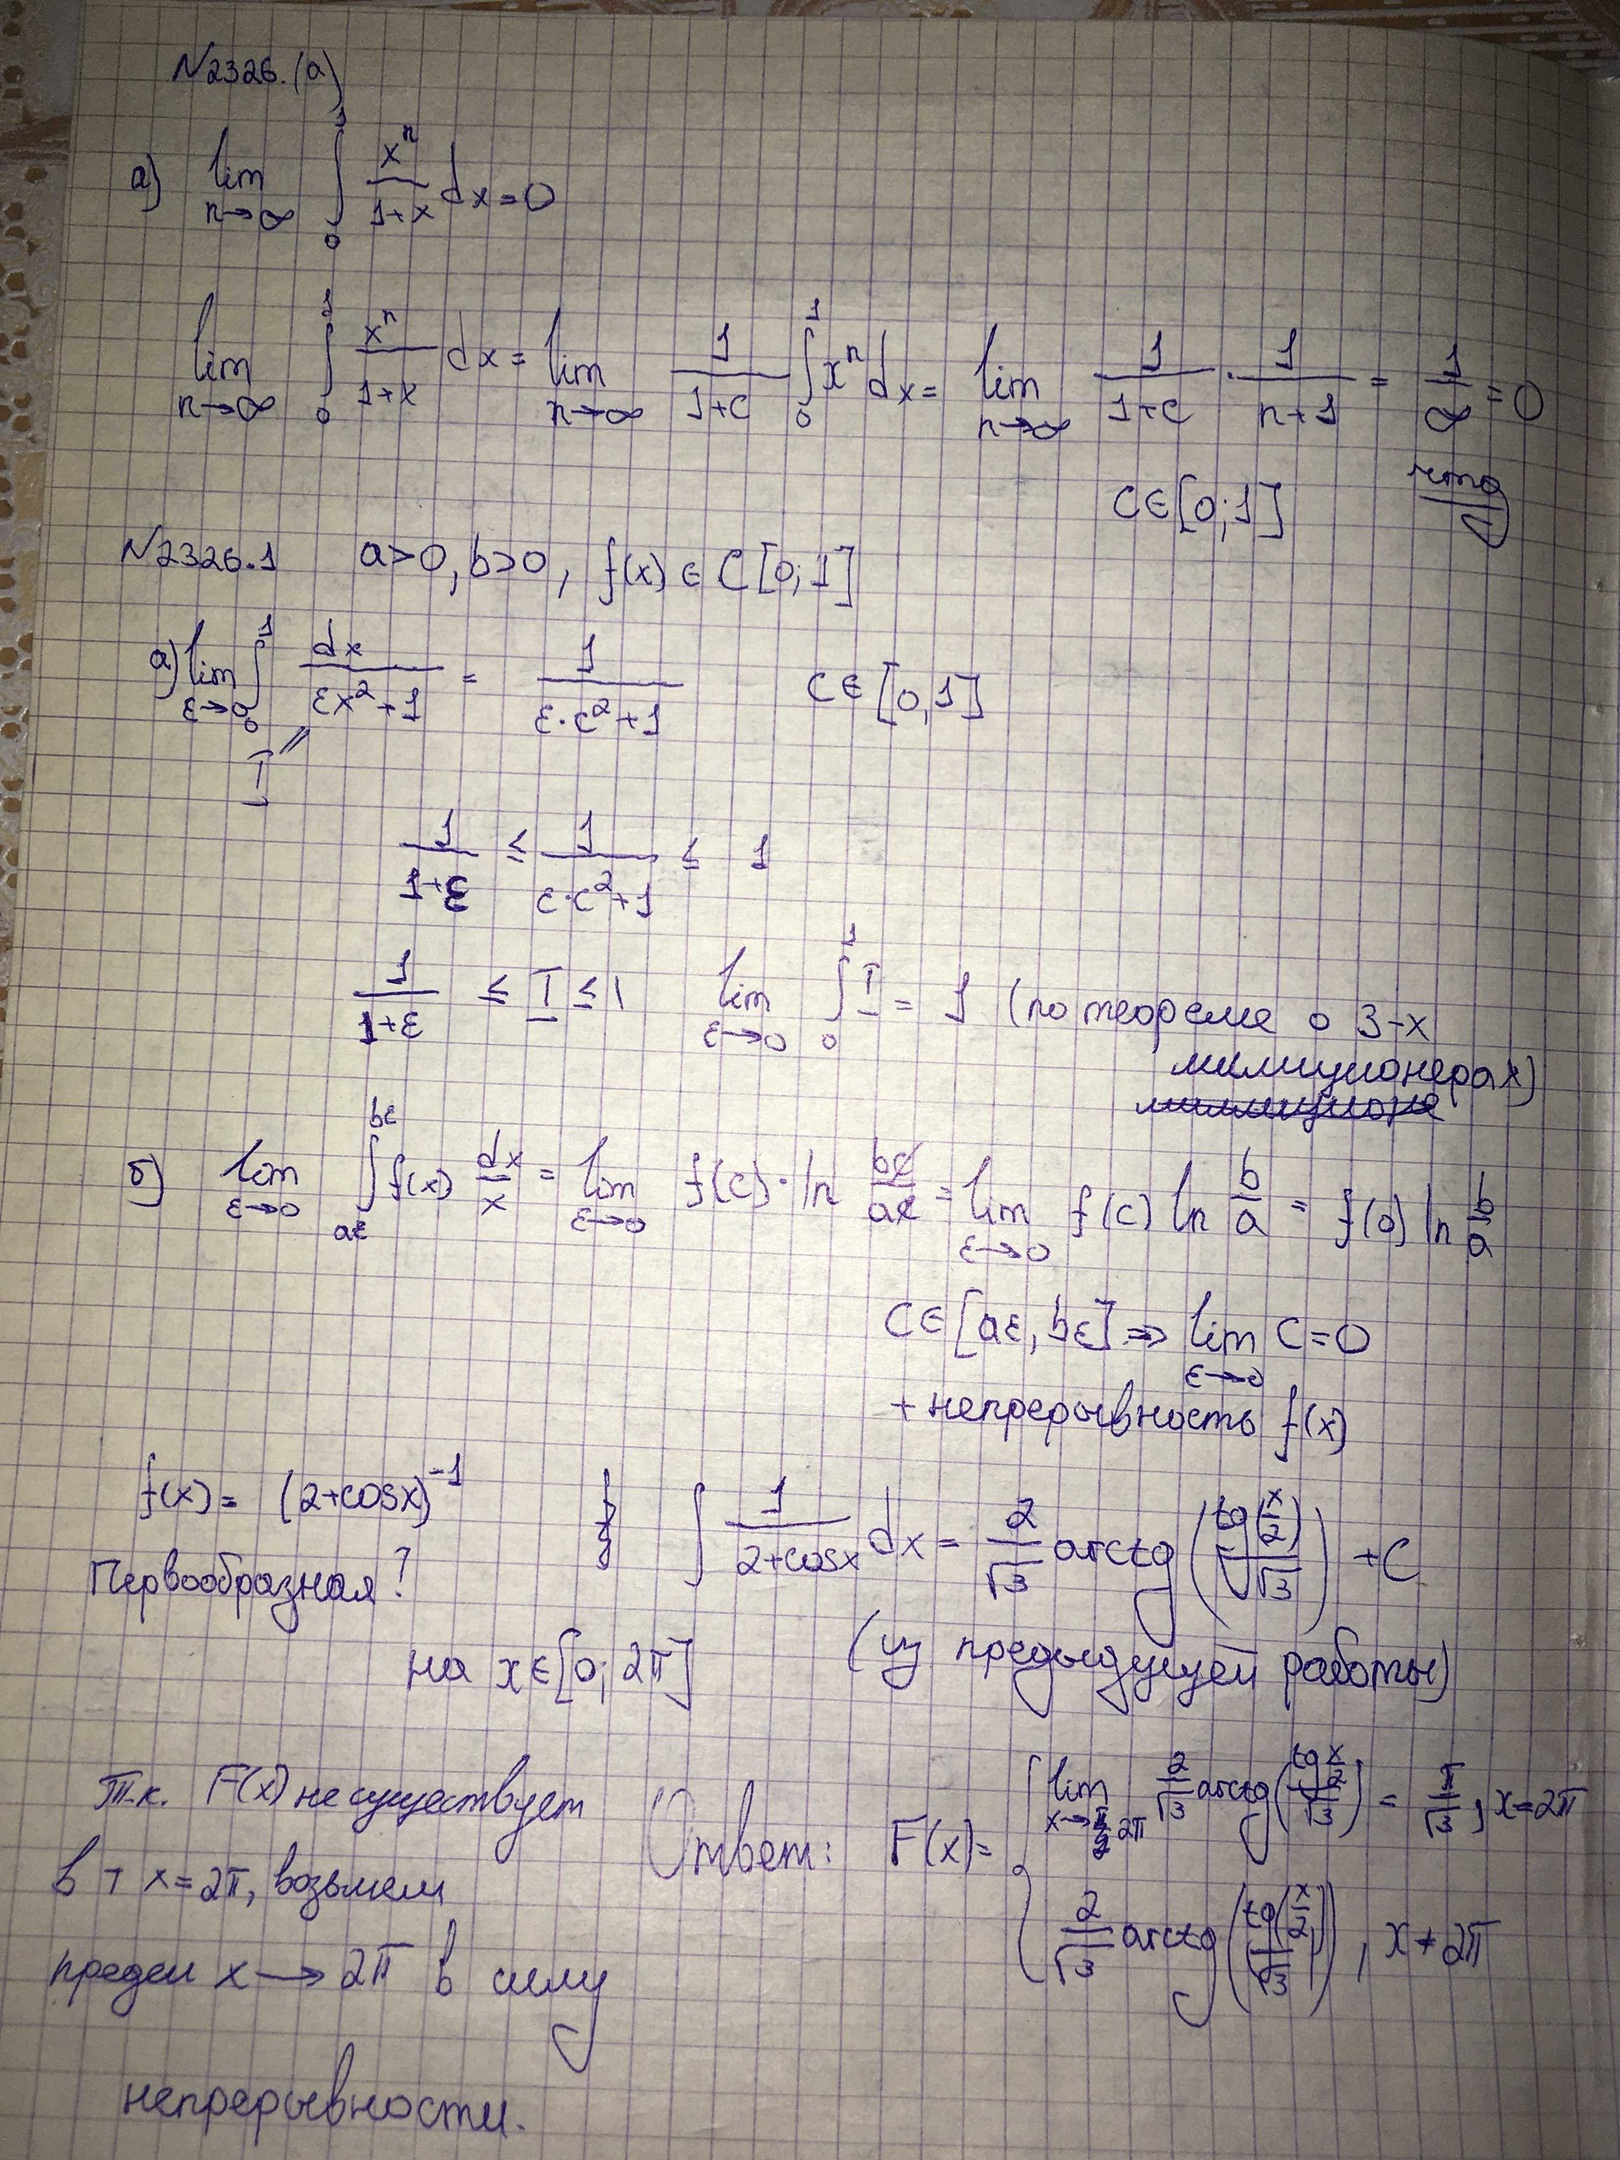 N2326.(а)
а) lim n→∞ ∫₀¹ xⁿ/(1+x) dx = 0
lim n→∞ ∫₀¹ xⁿ/(1+x) dx = lim n→∞ 1/(1+c) ∫₀¹ xⁿdx = lim n→∞ 1/(1+c) · 1/(n+1) = 1/∞ = 0
C∈[0;1] чтд
N2326.1 a>0, b>0, f(x) ∈ C[0;1]
а) lim ε→0 ∫₀¹ dx/(εx²+1) = 1/(ε·c²+1) C∈[0,1]
I
1/(1+ε) ≤ 1/(ε·c²+1) ≤ 1
1/(1+ε) ≤ I ≤ 1 lim ε→0 ∫₀¹ I = 1 (по теореме о 3-х
милиционерах)
б) lim ε→0 ∫_{aε}^{bε} f(x) dx/x = lim ε→0 f(c)·ln bε/aε = lim ε→0 f(c) ln b/a = f(0) ln b/a
C∈[aε, bε] ⇒ lim ε→0 C=0
+ непрерывность f(x)
f(x) = (2+cosx)⁻¹ ∫ 1/(2+cosx) dx = 2/√3 arctg(tg(x/2)/√3) + C
Первообразная?
на x∈[0; 2π] (из предыдущей работы)
Т.к. F(x) не существует
в т x=2π, возьмем
предел x→2π в силу
непрерывности.
Ответ: F(x)= { lim x→2π 2/√3 arctg(tg x/2 /√3) = π/√3, x=2π
2/√3 arctg(tg(x/2)/√3), x≠2π